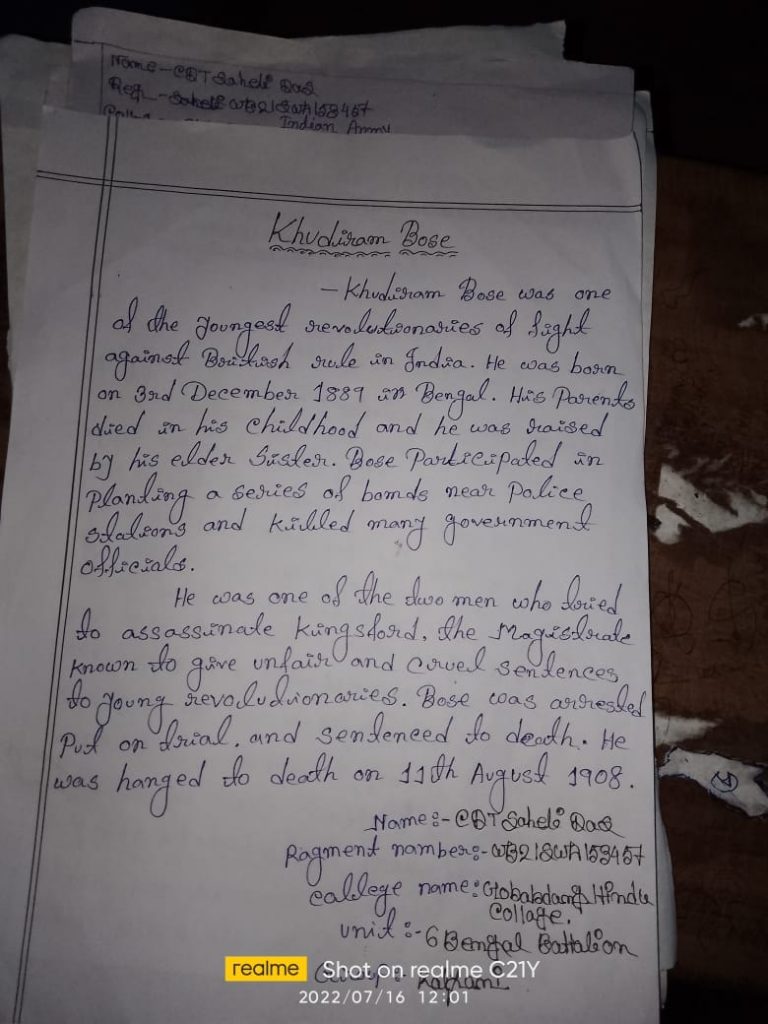 Name - CDT Saheli Das
Reg - Saheli WB21SWA153457
Indian Army
Khudiram Bose
- Khudiram Bose was one
of the youngest revolutionaries of fight
against British rule in India. He was born
on 3rd December 1889 in Bengal. His Parents
died in his childhood and he was raised
by his elder Sister. Bose Participated in
Planting a series of bomds near Police
stations and killed many government
officials.
He was one of the two men who tried
to assassinate Kingsford, the Magistrate
known to give unfair and cruel sentences
to young revolutionaries. Bose was arrested
Put on trial, and sentenced to death. He
was hanged to death on 11th August 1908.
Name:- CDT Saheli Das
Ragment namber:- WB21SWA153457
callege name: Gobabdang Hindu
Collage.
unit :- 6 Bengal Battalion
Group:- Kalyani
realme Shot on realme C21Y
2022/07/16 12:01